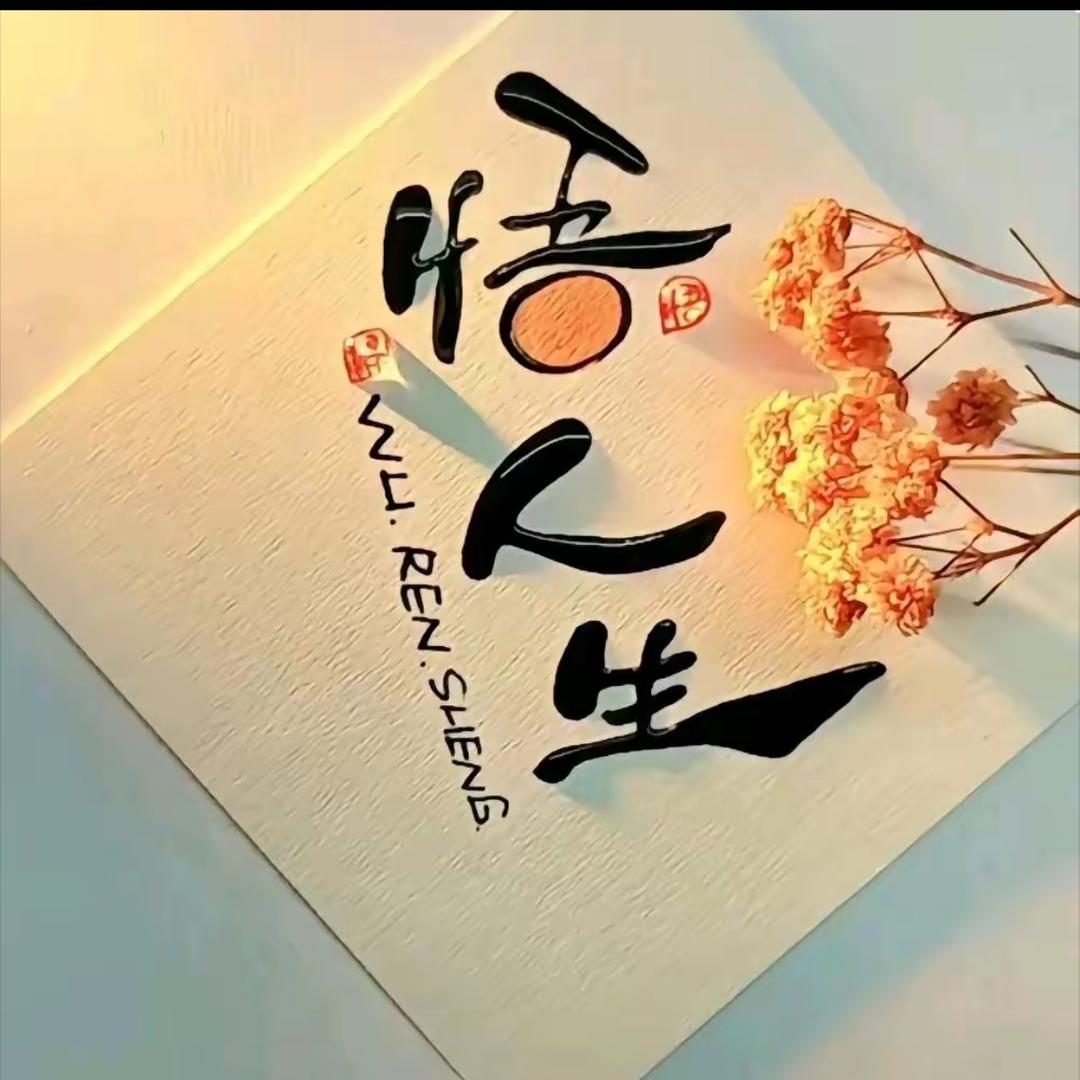 悟人生
WU. REN. SHENG.